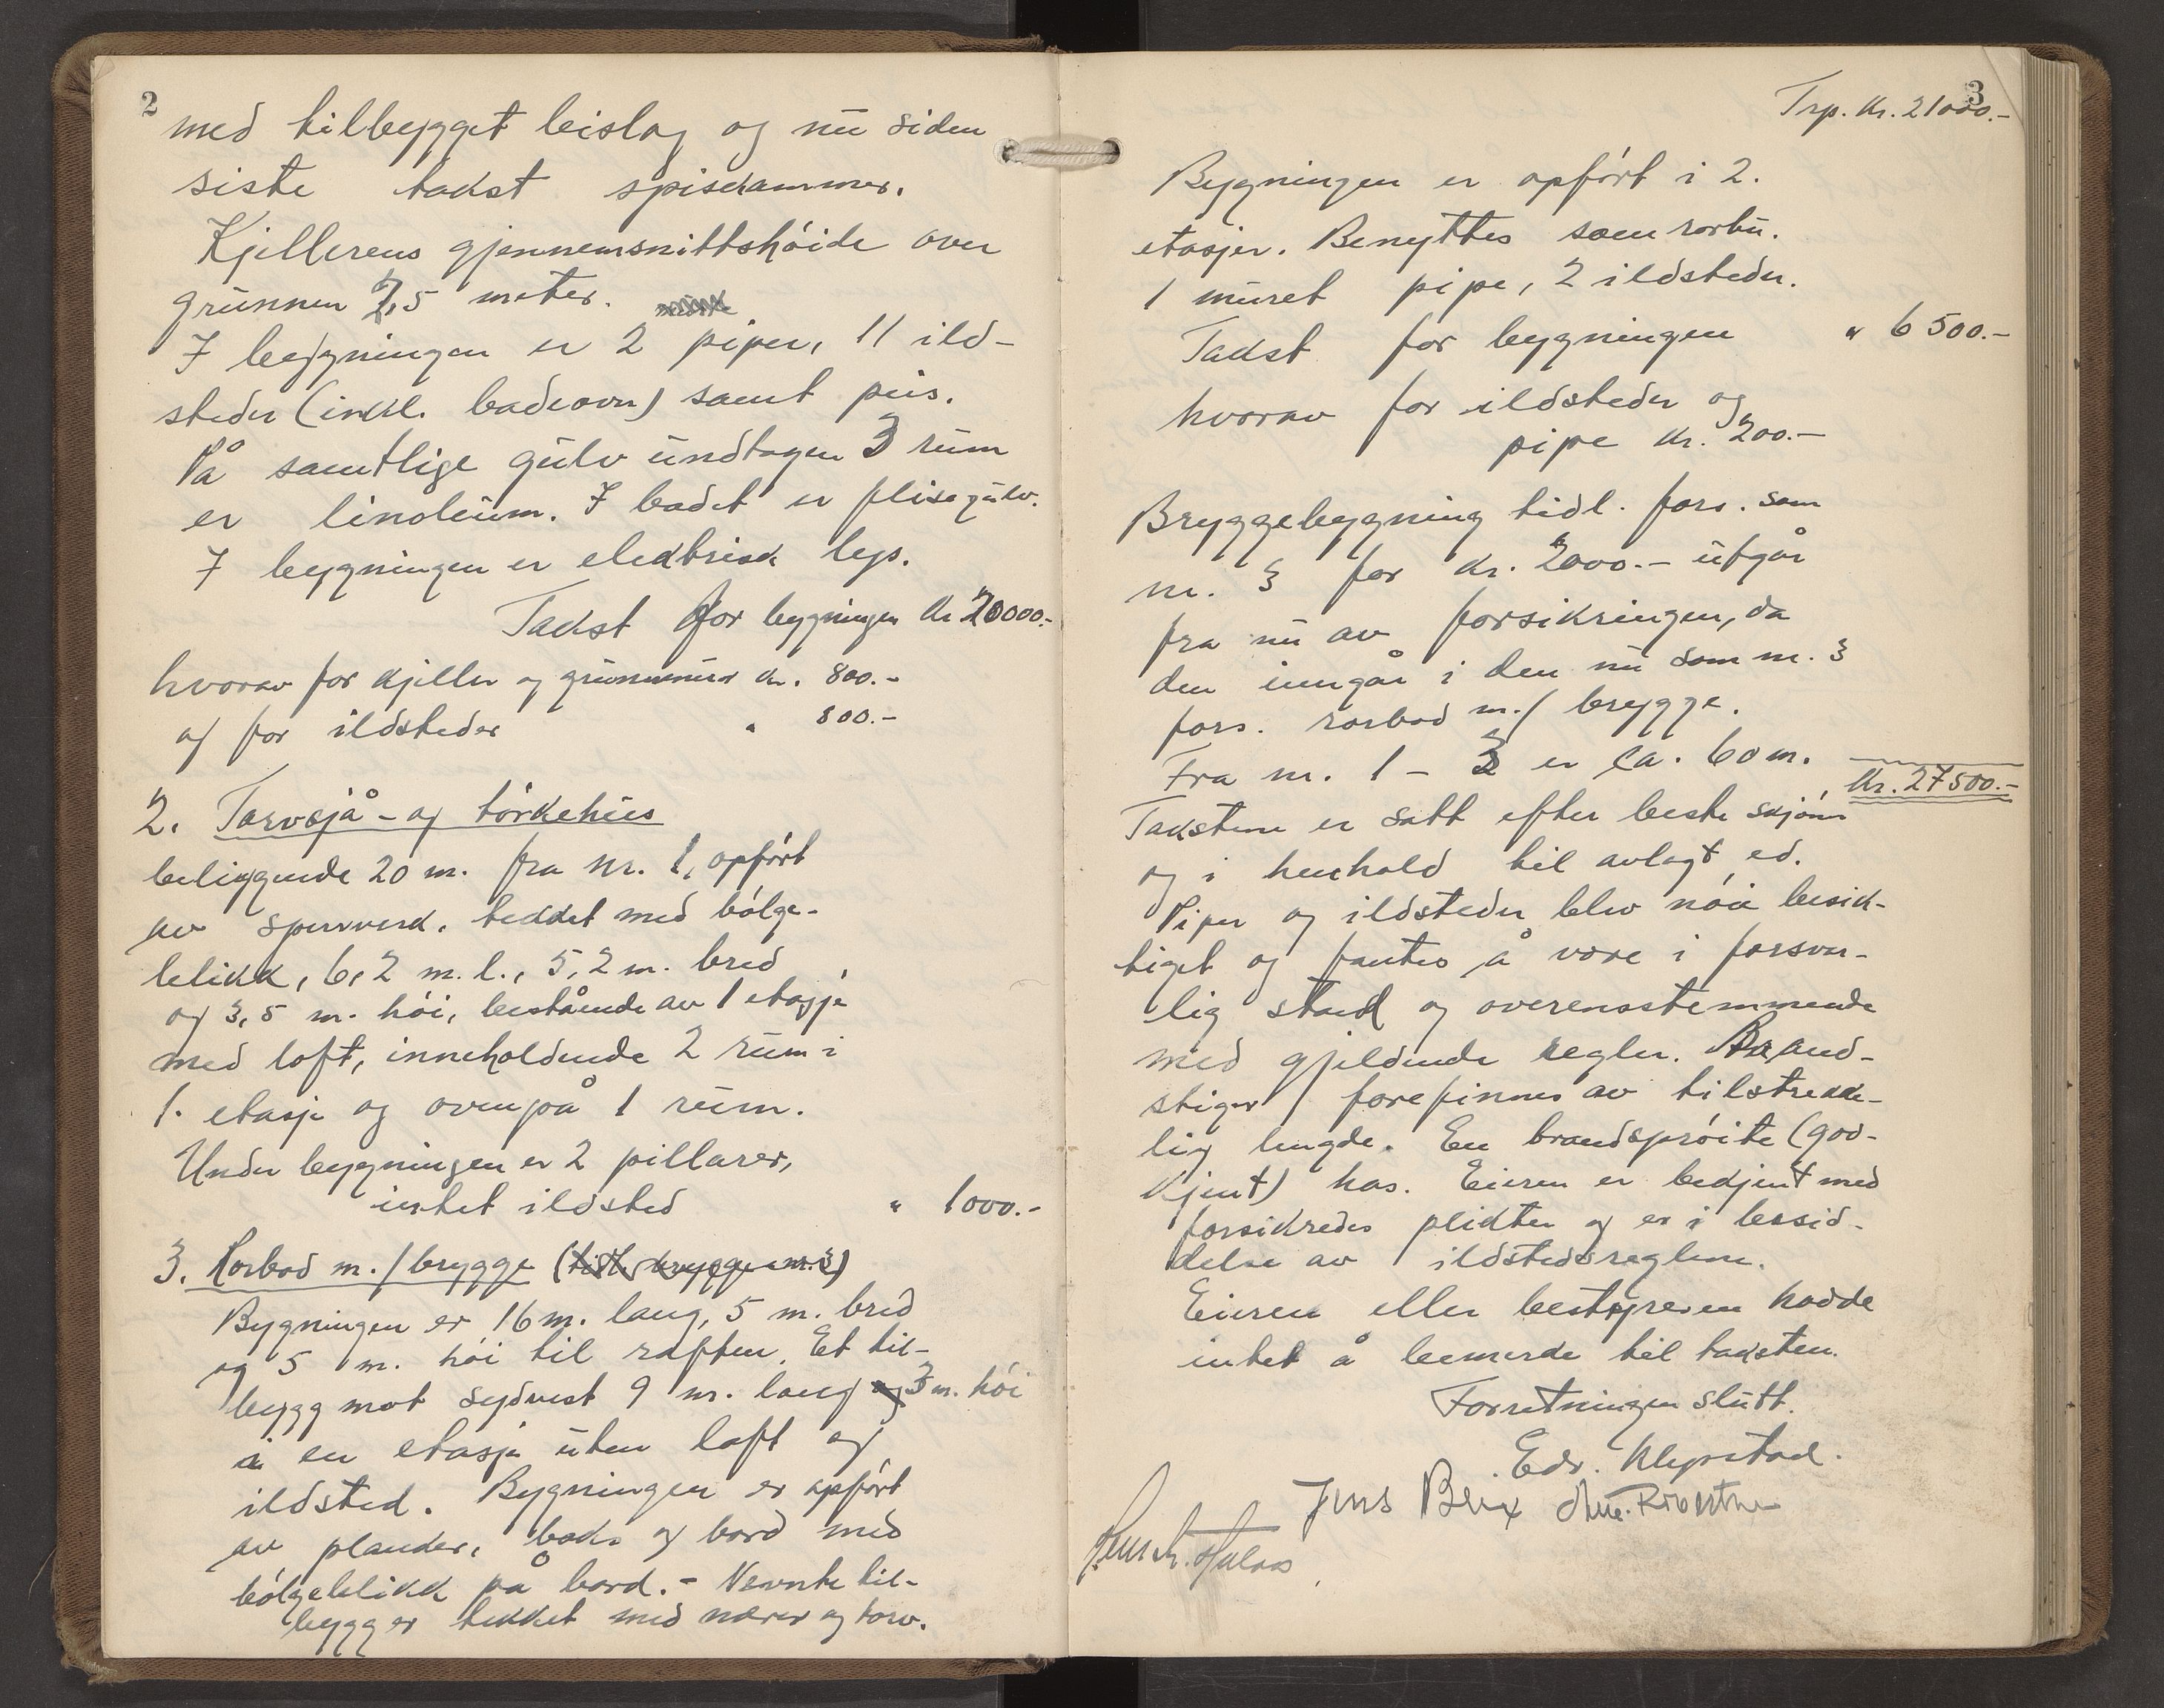 2
med tilbygget bislag og nu siden
siste takst spiskammer.
Kjellerens gjennemsnittshöide over
grunnen 2,5 meter.
I bygningen er 2 piper, 11 ild-
steder (inkl. badeovn) samt peis.
På samtlige gulv undtagen 3 rum
er linoleum. I badet er flisegulv.
I bygningen er elektrisk lys.
Takst for bygningen Kr 20000.-
hvorav for kjeller og grunnmur kr. 800.-
og for ildsteder " 800.-
2. Torvsjå- og törkehus
beliggende 20 m. fra nr. 1, opfört
av sperrverk, tekket med bölge-
blikk, 6,2 m. l., 5,2 m. bred
og 3,5 m. höi, bestående av 1 etasje
med loft, inneholdende 2 rum i
1. etasje og ovenpå 1 rum.
Under bygningen er 2 pillarer,
intet ildsted " 1000.-
3. Rorbod m./brygge (tidl. brygge nr. 3)
Bygningen er 16 m. lang, 5 m. bred
og 5 m. höi til raften. Et til-
bygg mot sydvest 9 m. lang og 3 m. höi
i en etasje uten loft og
ildsted. Bygningen er opfört
av planker, baks og bord med
bölgeblikk på bord. - Nevnte til-
bygg er tekket med næver og torv.
3
Trp. kr. 21000.-
Bygningen er opfört i 2.
etasjer. Benyttes som rorbu.
1 muret pipe, 2 ildsteder.
Takst for bygningen " 6500.-
hvorav for ildsteder og
pipe kr. 200.-
Bryggebygning tidl. fors. som
nr. 3 for kr. 2000.- utgår
fra nu av forsikringen, da
den inngår i den nu som nr. 3
fors. rorbod m./ brygge.
Fra nr. 1 - 3 er ca. 60 m.
Kr. 27500.-
Takstene er satt efter beste skjönn
og i henhold til avlagt ed.
Piper og ildsteder blev nöie besik-
tiget og fantes å være i forsvar-
lig stand og overensstemmende
med gjeldende regler. Brand-
stiger forefinnes av tilstrekke-
lig lengde. En brandspröite (god-
kjent) has. Eieren er bekjent med
forsikredes plikter og er i besid-
delse av ildstedsreglene.
Eieren eller bestyreren hadde
intet å bemerke til taksten.
Forretningen slutt.
Edv. Klypstad.
Jens Beix